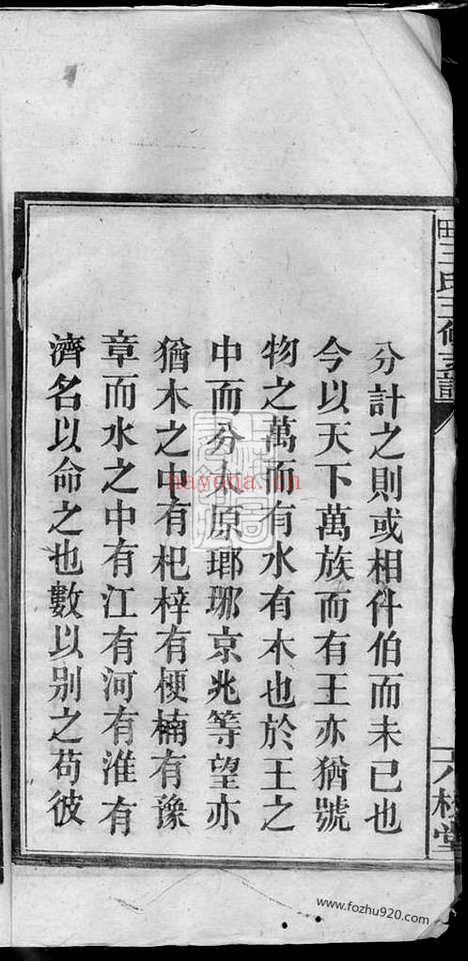 田王氏三修支譜
分計之則或相什伯而未已也
今以天下萬族而有王亦猶號
物之萬而有水有木也於王之
中而分太原瑯琊京兆等望亦
猶木之中有杞梓有梗楠有豫
章而水之中有江有河有淮有
濟名以命之也數以別之苟彼
nayona.cn
www.fozhu920.com